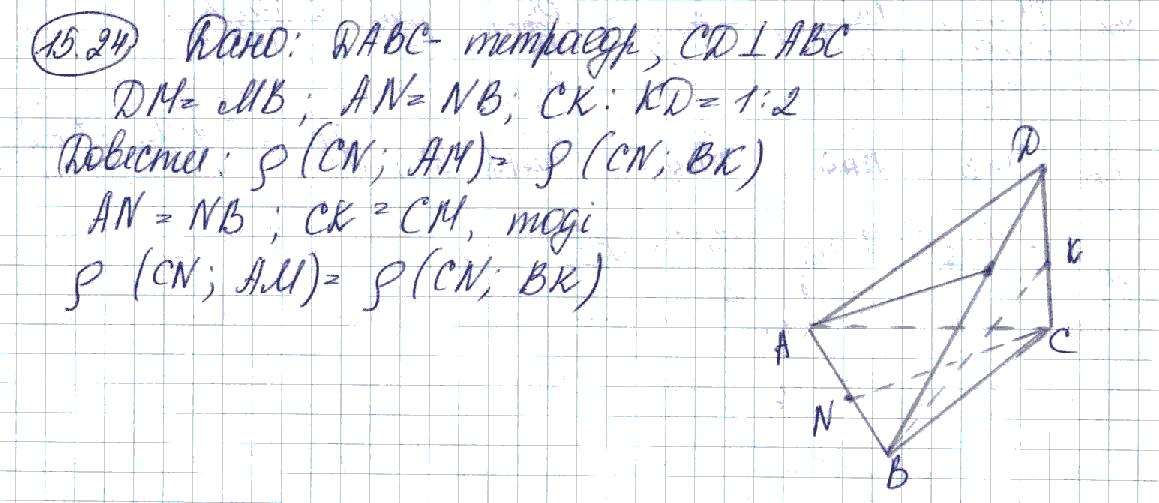 15.24 Дано: DABC- тетраедр, CD⊥ABC
DM= MB; AN= NB; CK: KD= 1:2
Довести: ρ (CN; AM)= ρ (CN; BK)
AN = NB ; CK = CM, тоді
ρ (CN; AM)= ρ (CN; BK)
D
K
A
C
N
B